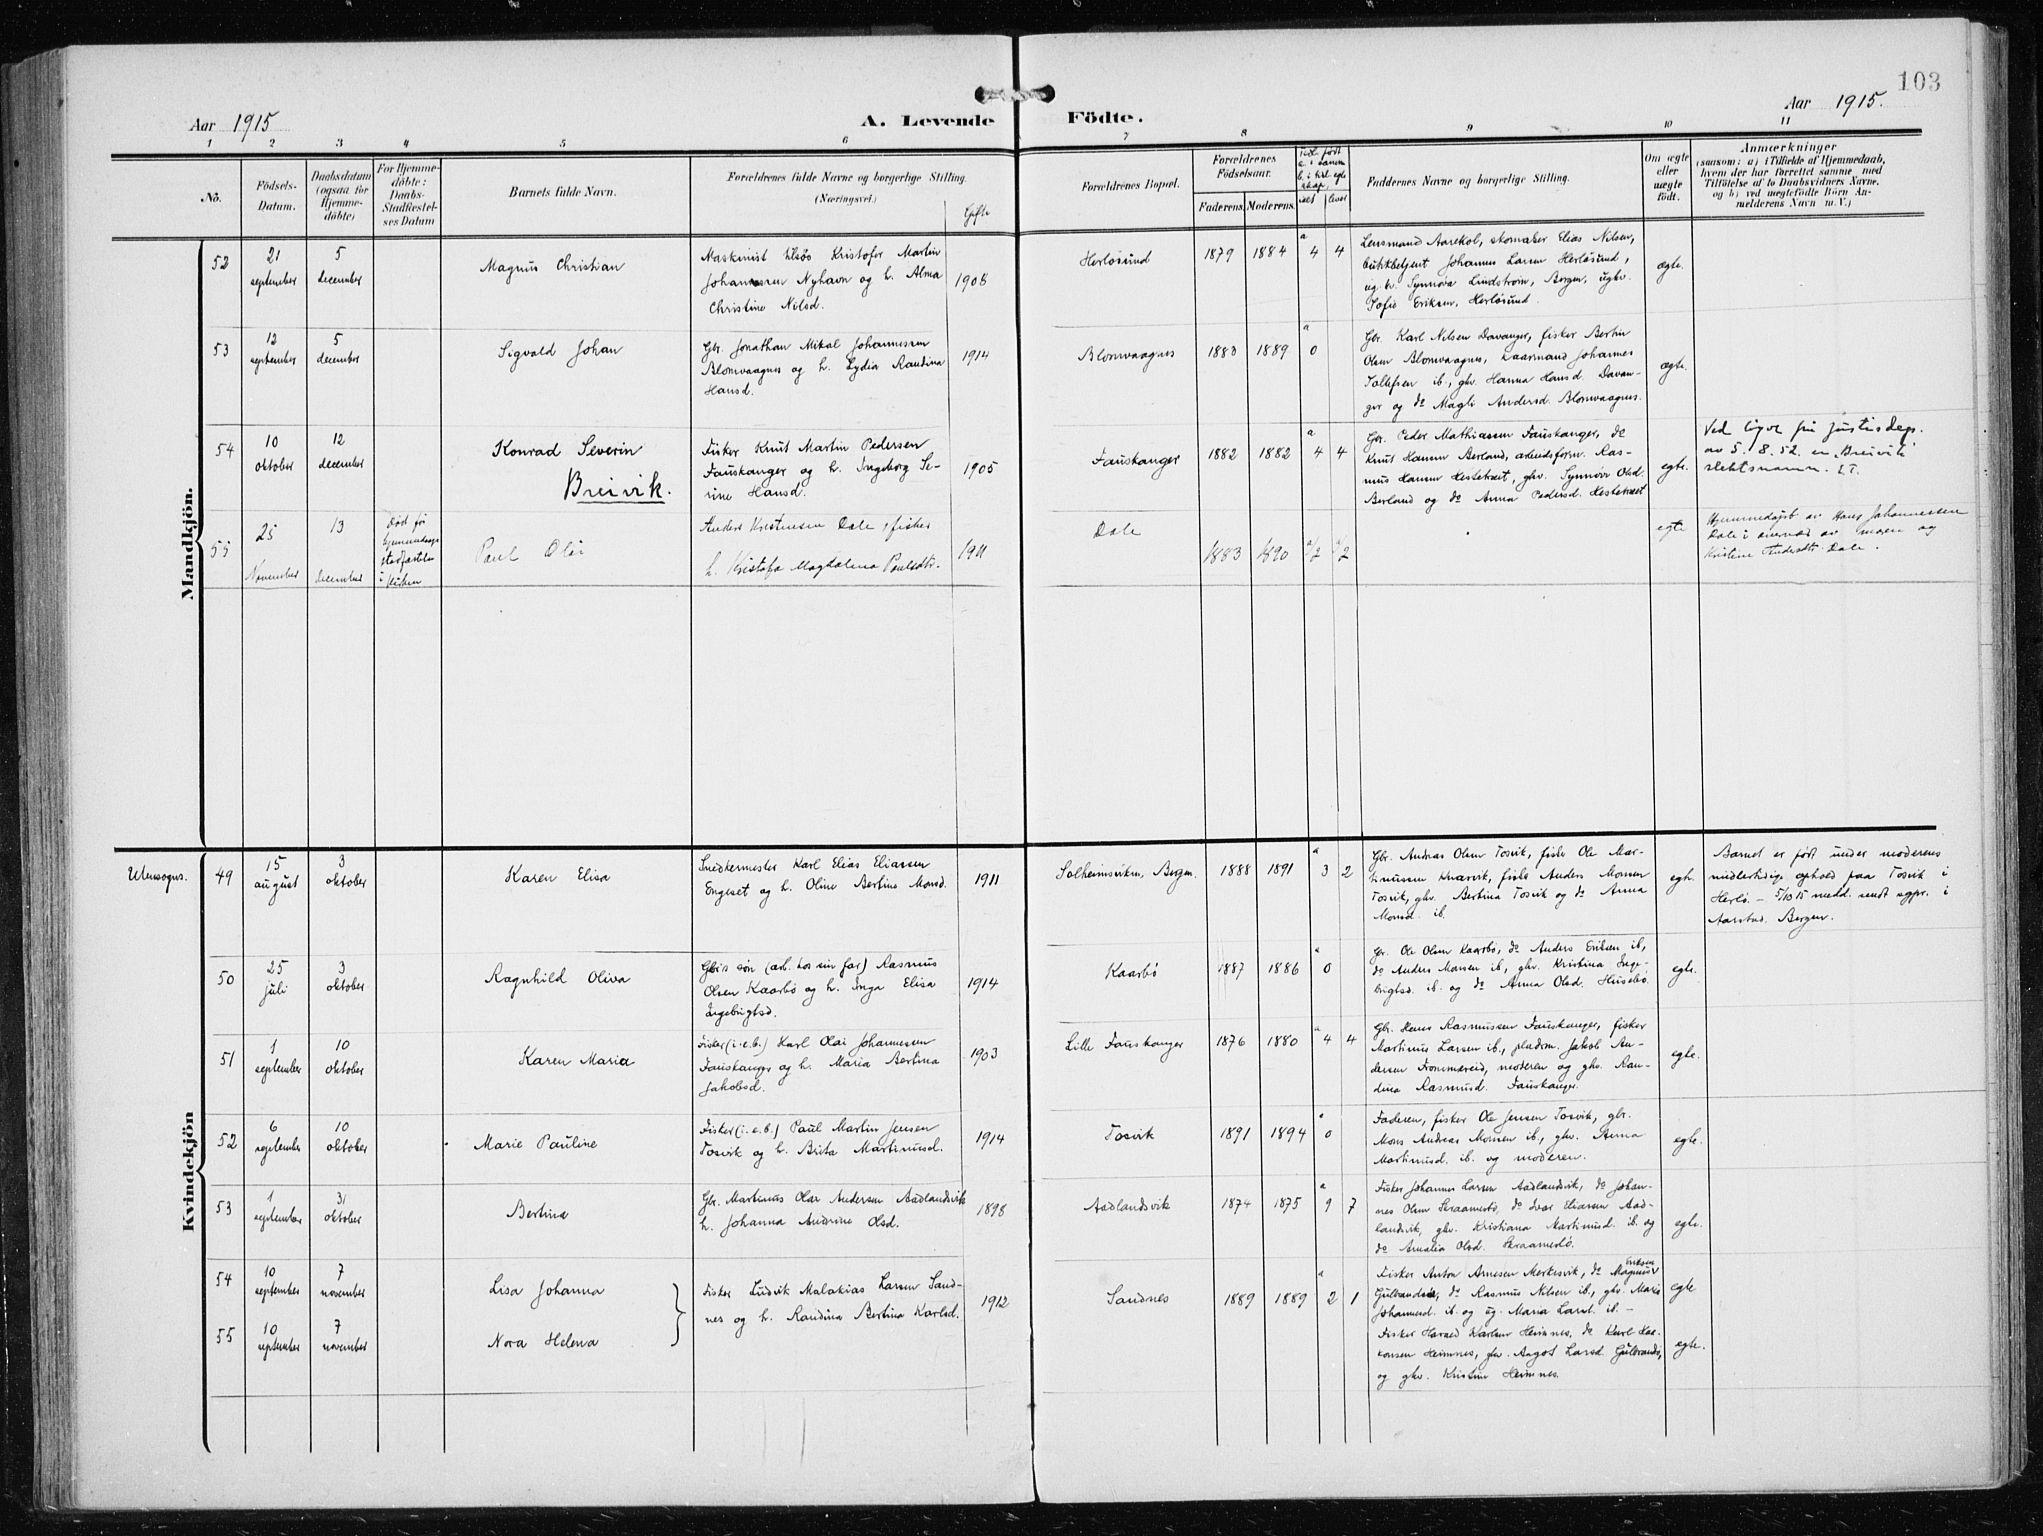 103
Aar 1915
A. Levende Födte.
Aar 1915.
1 2 3 4 5 6 7 8 9 10 11
No.
Födsels-
Datum.
Daabsdatum
(ogsaa for
Hjemme-
döbte)
For Hjemme-
döbte:
Daabs-
Stadfæstel-
ses Datum
Barnets fulde Navn.
Forældrenes fulde Navne og borgerlige Stilling.
(Næringsvei.)
Gifte
Forældrenes Bopæl.
Forældrenes
Födselsaar.
Faderens. Moderens.
Faddernes Navne og borgerlige Stilling.
Om ægte
eller
uægte
født.
Anmærkninger
(saasom: a) i Tilfælde af Hjemmedaab,
hvem der har forrettet samme, med
Tilföielse af to Daabsvidners Navne,
og b) ved uægtefödte Börn An-
melderens Navn m. V.)
Mandkjön.
52
21
september
5
december
Magnus Christian
Maskinist Kristofer Martin
Johannessen Nyhavn og h. Alma
Christine Nilsd.
1908
Herløsund
1879 1884
a
4 4
Lensmand Aarekol, skomaker Elias Nilsen,
butikbetjent Johannes Larsen Herløsund,
Synnøva Lindstrøm, Bergen, ugkv.
Sofie Eriksen, Herløsund.
ægte.
53
12
september
5
december
Sigvald Johan
Gbr. Jonathan Mikal Johannessen
Blomvaagnes og h. Lydia Raudina
Hansd.
1914
Blomvaagnes
1883 1889
a
0
Gbr. Karl Nilsen Davanger, fisker Bertin
Olsen Blomvaagnes, Johannes
Tollefsen ib., gkv. Hanna Hansd. Davan-
ger og do Magli Andersd. Blomvaagnes.
ægte.
54
10
oktober
12
december
Konrad Severin
Breivik.
Fisker Knut Martin Pedersen
Fauskanger og h. Ingeborg Se-
rine Hansd.
1905
Fauskanger
1882 1882
a
4 4
Gbr. Peder Mathiassen Fauskanger, do
Knut Hansen Berland, arbeidsform. Ras-
mus Hansen Hestetræet, gkv. Synnøve Olsd.
Berland og do Anna Pedersd. Hestetræet
egte.
Ved bigve fra justisdep.
av 5.8.52. er "Breivik"
slektsnamn. L T.
55
25
November
13
december
Død før
i kirken
Paul Olai
Anders Kristensen Dale, fisker
h. Kristofa Magdalena Paulsdtr.
1911
Dale
1883 1890
a/2 a/2
egte
Hjemmedøpt av Hans Johannessen
Dale i overvær av moren og
Kristine Andersdt. Dale.
Kvindekjön
Utensogns.
49
15
august
3
oktober
Karen Elisa
Snedkermester Karl Elias Eliassen
Engeset og h. Oline Bertine Monsd.
1911
Solheimsviken, Bergen.
1888 1891
a
3 2
Gbr. Andreas Olsen Tosvik, fisker Ole Mar-
knussen Kvarvik, fisker Anders Monsen
Tosvik, gkv. Bertina Tosvik og do Anna
Monsd. ib.
egte.
Barnet er født under moderens
midlertidige ophold paa Tosvik i
Herlø. — 5/10 15 medd. sendt sgpr. i
Aarstad, Bergen.
50
25
juli
3
oktober
Ragnhild Oliva
Gbr's søn (arb. hos sin far) Rasmus
Olsen Kaarbø og h. Inga Elisa
Ingebrigtsd.
1914
Kaarbø
1887 1886
a
0
Gbr. Ole Olsen Kaarbø, do Anders Eriksen ib,
do Anders Monsen ib., gkv. Kristina Inge-
brigtsd. ib. og do Anna Olsd. Husebø.
egte.
51
1
september
10
oktober
Karen Maria
Fisker (i.e.b.) Karl Olai Johannesen
Fauskanger og h. Maria Bertina
Jakobsd.
1903
Lille Fauskanger
1876 1880
a
4 4
Gbr. Hans Rasmussen Fauskanger, fisker
Martinus Larsen ib., pladsm. Jakob An-
dersen Frommereid, moderen og gkv. Ran-
dina Rasmusd. Fauskanger.
egte.
52
6
september
10
oktober
Marie Pauline
Fisker (i.e.b.) Paul Martin Jensen
Tosvik og h. Brita Martinusd.
1914
Tosvik
1891 1894
a
0
Faderen, fisker Ole Jensen Tosvik, gbr.
Mons Andreas Monsen ib., gkv. Anna
Martinusd. ib. og moderen.
egte.
53
1
september
31
oktober
Bertina
Gbr. Martinus Olai Andersen Aadlandsvik
h. Johanna Andrine Olsd.
1898
Aadlandsvik
1874 1875
a
9 7
Fisker Johannes Larsen Aadlandsvik, do Johan-
nes Olsen Skraamestø, do Ivar Eliassen Aad-
landsvik, gkv. Kristiana Martinusd. ib. og
do Amalia Olsd. Skraamestø.
egte.
54
10
september
7
november
Lisa Johanna
Fisker Ludvik Malakias Larsen Sand-
nes og h. Raudina Bertina Karlsd.
1912
Sandnes
1889 1889
a
2 1
Fisker Anton Arnesen Merkesvik, do Magnus Eriksen
Gulbrandsø, do Rasmus Nilsen ib., gkv. Marie
Johannesd. ib. og ug. Maria Larsd. ib. —
egte
55
10
september
7
november
Nora Helena
Fisker Harald Karlsen Heimnes, do Karl Haa-
konsen Heimnes, gkv. Angot Larsd. Gulbrandsø,
og gkv. Kristine Heimnes.
egte.